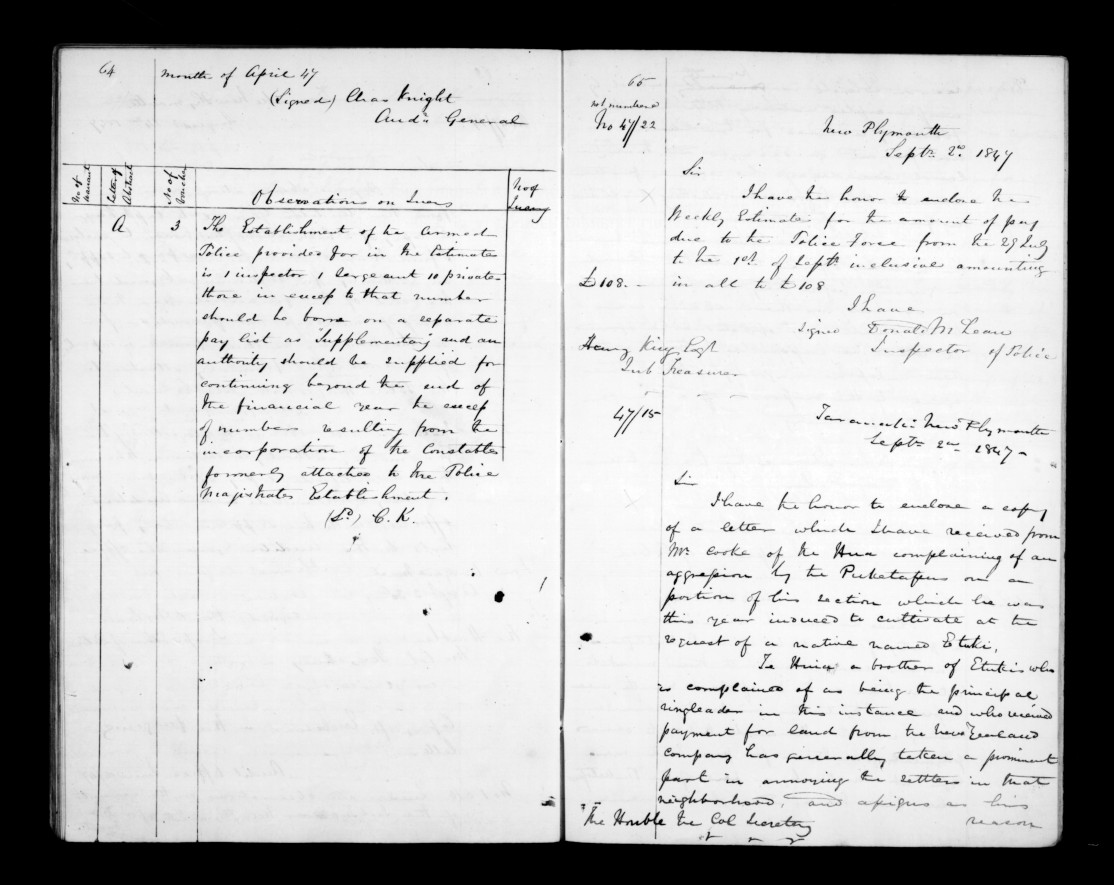 64
month of April 47
(Signed) Chas Knight
Audr General
No of
Warrant
Letter of
Abstract
No of
Voucher
Observations or Querys
No of
Query
A 3 The Establishment of the Armed
Police provided for in the Estimate
is 1 inspector 1 Sergeant 10 privates
those in excep to that number
should be borne on a separate
pay list as Supplementary and an
authority should be supplied for
continuing beyond the end of
the financial year the excep
of numbers resulting from the
incorporation of the Constables
formerly attached to the Police
Magistrates Establishment.
(Sd) C. K.
65
not numbered
No 47/22
New Plymouth
Septr 2d 1847
Sir
I have the honor to enclose the
Weekly Estimate for the amount of pay
due to the Police Force from the 29 July
to the 1st of Septr inclusive amounting
£108.- in all to £108
I have
signed Donald McLean
Inspector of Police
Henry King Esqr
Sub Treasurer
47/15
Taranaki New Plymouth
Septr 2d 1847-
Sir
I have the honor to enclose a copy
of a letter which I have received from
Mr Cooke of the Hua complaining of an
aggression by the Puketapus on a
portion of his section which he was
this year induced to cultivate at the
request of a native named Etuki.
Te Huia a brother of Etukis who
is complained of as being the principal
ringleader in this instance and who received
payment for land from the New Zealand
Company has generally taken a prominent
part in annoying the settlers in that
neighborhood, and assigns as his
The Honble The Col Secretary
reason